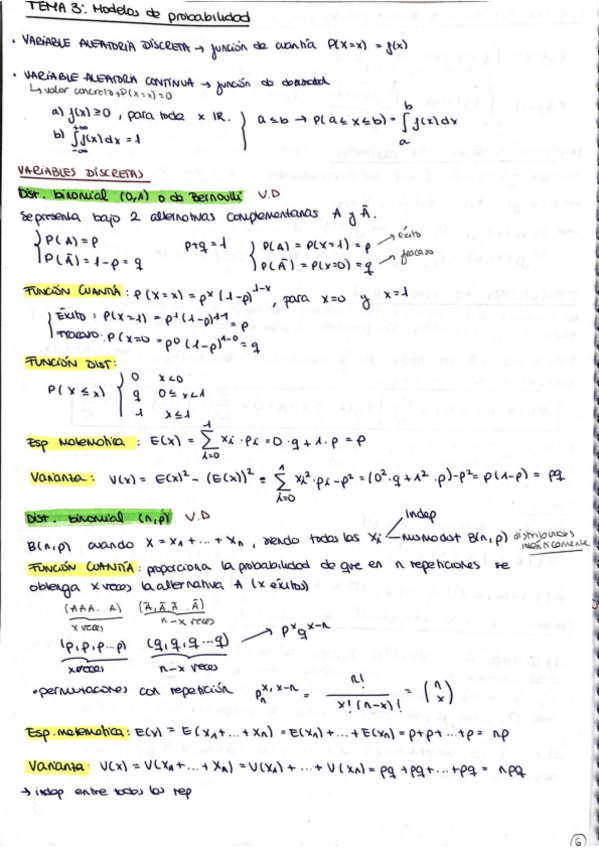 TEMA 3: Modelos de probabilidad
· VARIABLE ALEATORIA DISCRETA → función de cuantía P(X=x) = f(x)
· VARIABLE ALEATORIA CONTINUA → función de densidad
↳ valor concreto, P(X=x)=0
a) f(x) ≥ 0, para toda x IR. } a ≤ b → P(a ≤ x ≤ b) = ∫_a^b f(x)dx
b) ∫_{-∞}^{+∞} f(x)dx = 1
VARIABLES DISCRETAS
Dist. binomial (0,1) o de Bernoulli V.D
Se presenta bajo 2 alternativas complementarias A y Ā.
{ P(A) = p p+q = 1 { P(A) = P(X=1) = p → éxito
P(Ā) = 1-p = q P(Ā) = P(X=0) = q → fracaso
FUNCIÓN CUANTÍA: P(X=x) = p^x (1-p)^{1-x}, para x=0 y x=1
{ Éxito: P(X=1) = p^1 (1-p)^{1-1} = p
Fracaso: P(X=0 = p^0 (1-p)^{1-0} = q
FUNCIÓN DIST:
P(X ≤ x) { 0 x<0
q 0≤x<1
1 x≤1
Esp Matemática: E(x) = ∑_{i=0}^{1} xi · pi = 0·q + 1·p = p
Varianza: V(x) = E(x)² - (E(x))² = ∑_{i=0}^{1} xi² · pi - p² = (0²·q + 1²·p) - p² = p(1-p) = pq
Dist. binomial (n,p) V.D
B(n,p) cuando X = X1 + ... + Xn, siendo todas las Xi < indep
misma dist B(n,p) distribuidas idénticamente
FUNCIÓN CUANTÍA: proporciona la probabilidad de que en n repeticiones se
obtenga x veces la alternativa A (x éxitos)
(A A A... A) (Ā, Ā, Ā... Ā)
x veces n-x veces
(p, p, p... p) (q, q, q... q) → p^x q^{x-n}
x veces n-x veces
• permutaciones con repetición P_n^{x, x-n} = n! / x! (n-x)! = (n x)
Esp. matemática: E(x) = E(X1 + ... + Xn) = E(X1) + ... + E(Xn) = p + p + ... + p = np
Varianza: V(x) = V(X1 + ... + Xn) = V(X1) + ... + V(Xn) = pq + pq + ... + pq = npq
→ indep entre todas las rep
6